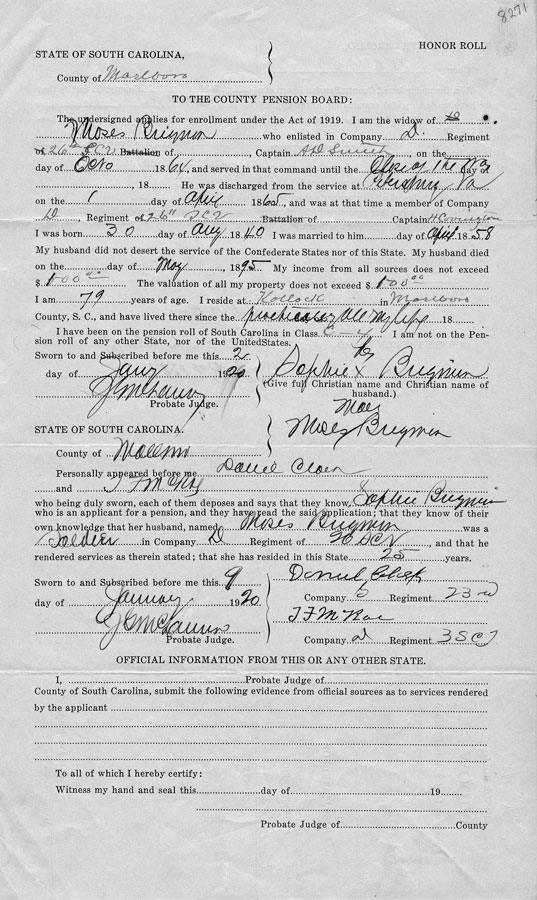 8271
HONOR ROLL
STATE OF SOUTH CAROLINA,
County of Marlboro
TO THE COUNTY PENSION BOARD:
The undersigned applies for enrollment under the Act of 1919. I am the widow of
Moses Brigman who enlisted in Company D. Regment
of 26th SCV Battalion of, Captain on the
day of 1864, and served in that command until the Close of the War day of
, 18 He was discharged from the service at Va
on the 1 day of April 1865, and was at that time a member of Company
D, Regment of 26th SCV Battalion of Captain H Covington
I was born 30 of Aug 1840 I was married to him day of April 1858
My husband did not desert the service of the Confederate States nor of this State. My husband died
on the day of May, 1895. My income from all sources does not exceed
$100.00 The valuation of all my property does not exceed $100.00
I am 79 years of age. I reside at Kollock in Marlboro
County, S. C., and have lived there since the practically all my life 18
I have been on the pension roll of South Carolina in Class C 4 I am not on the Pen-
sion roll of any other State, nor of the UnitedStates.
Sworn to and Subscribed before me this 2
day of Jany 1920
Sophie x Brigman
(Give full Christian name and Christian name of
husband.)
Probate Judge.
Moses Brigman
STATE OF SOUTH CAROLINA.
County of
Personally appeared before me Daniel
and T F McRae
who being duly sworn, each of them deposes and says that they know Sophie Brigman
who is an applicant for a pension, and they have read the said application; that they know of their
own knowledge that her husband, named Moses Brigman was a
Soldier in Company D Regiment of 26 SCV, and that he
rendered services as therein stated; that she has resided in this State 25 years.
Sworn to and Subscribed before me this 9
day of January 1920
Daniel
Company Regiment 23rd
T F McRae
Probate Judge.
Company D Regiment
OFFICIAL INFORMATION FROM THIS OR ANY OTHER STATE.
I, Probate Judge of
County of South Carolina, submit the following evidence from official sources as to services rendered
by the applicant
To all of which I hereby certify:
Witness my hand and seal this day of 19
Probate Judge of County